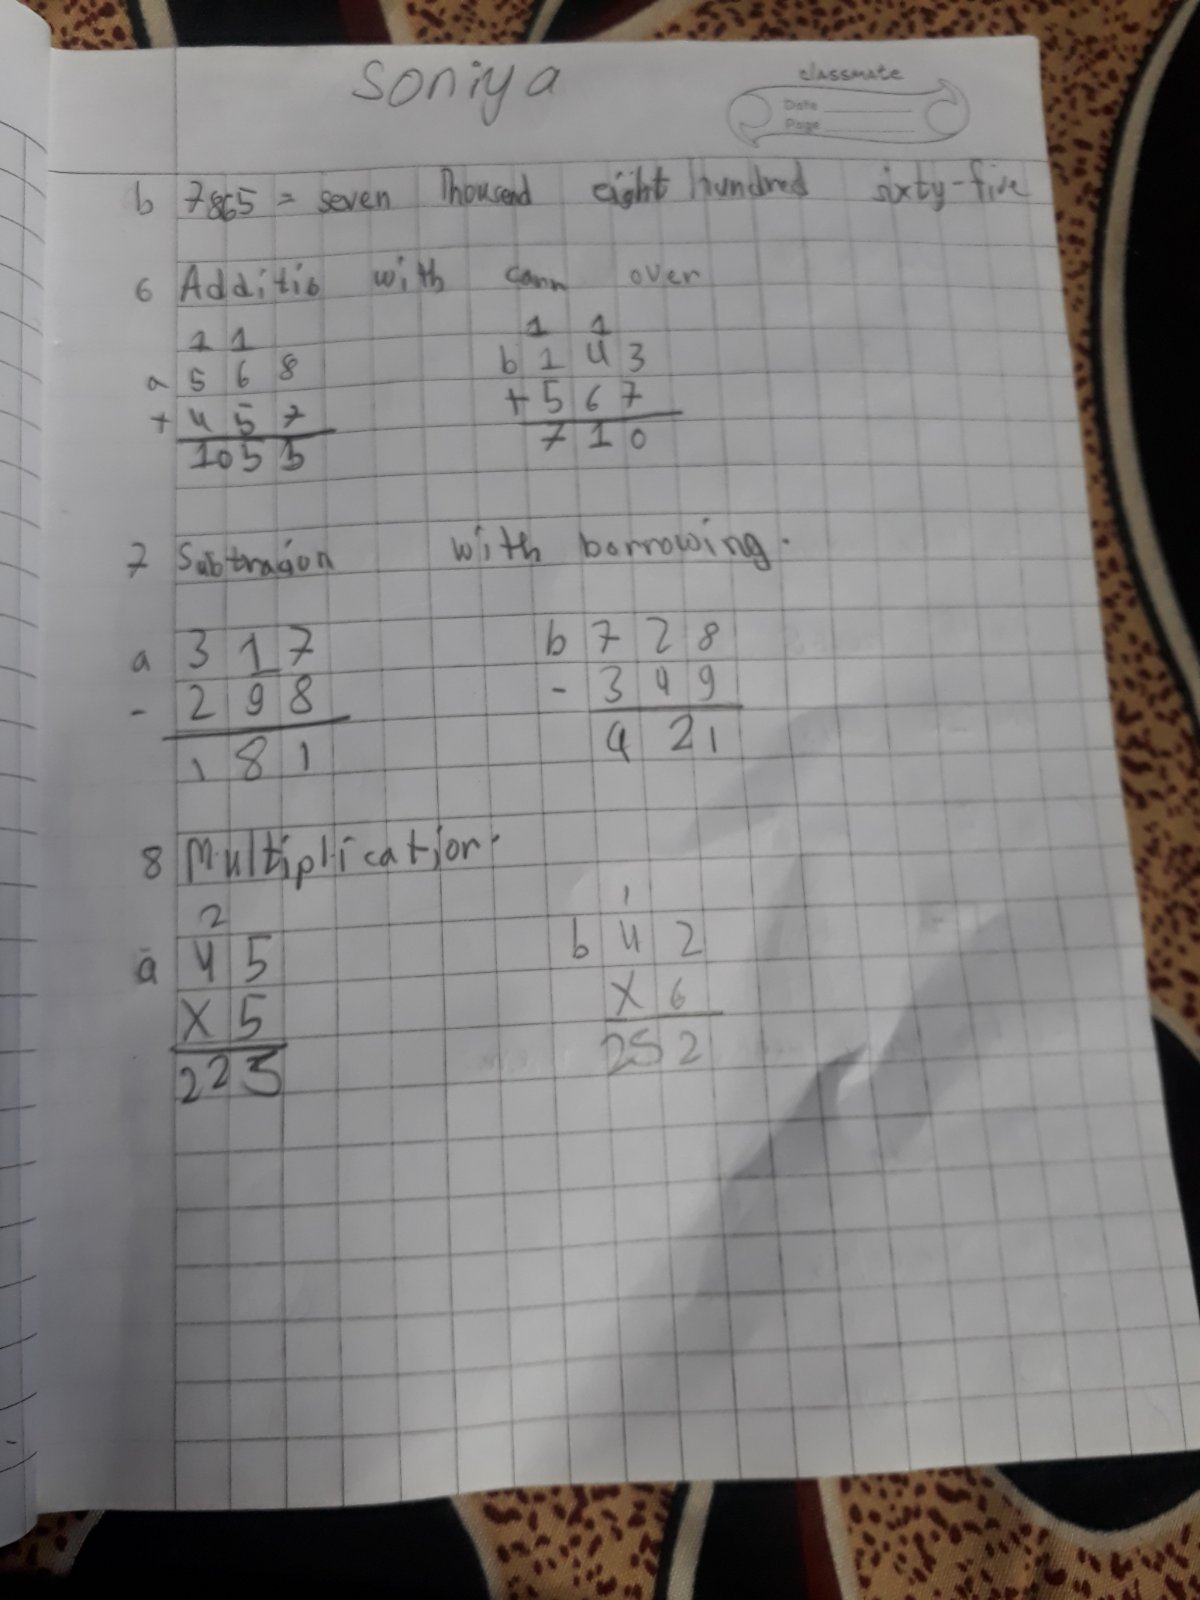 Soniya
classmate
Date
Page
b 7865 = seven Thousend eight hundred sixty-five
6 Additio with carr over
1 1
a 5 6 8
+ 4 5 7
1 0 5 5
1 1
b 1 4 3
+ 5 6 7
7 1 0
7 Subtragion with borrowing.
a 3 1 7
- 2 9 8
1 8 1
b 7 2 8
- 3 4 9
4 2 1
8 Multiplication.
2
a 4 5
X 5
2 2 5
1
b 4 2
X 6
2 5 2